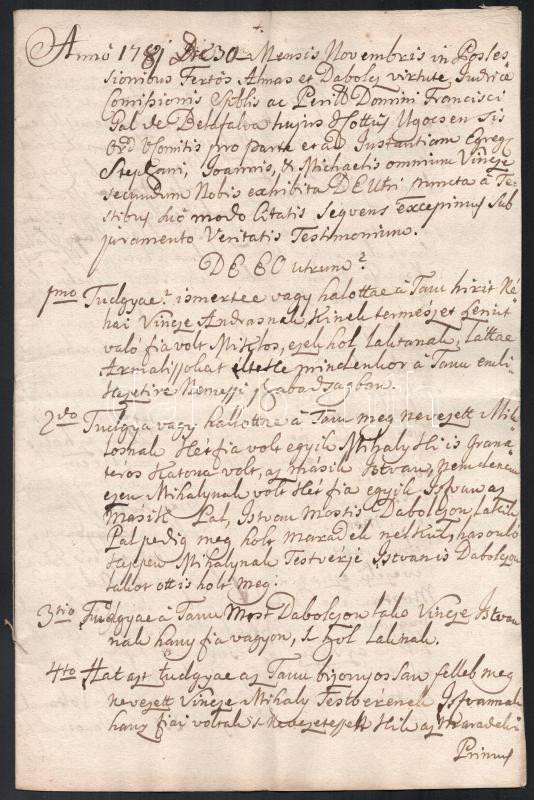 Anno 1781 Die 30 Mensis Novembris in Posses
sionibus Fertös Almas et Dabolcz virtute Judria
Comissionis Spblis ac Perill Domini Francisci
Gal de Bethfalva hujus Iottus Ugocsen Sis
Ord Vsomitis pro parte et ad Instantiam Egreg
Stephani, Joannis, & Michaelis omnium Vincze
secundum Nobis exhibita DEUtri puncta à Te-
stibus huc modo Citatis Seqvens excepimus sub
juramento Veritatis Testimonium.
DE EO utrum?
1mo Tudgyae? ismertee vagy halottae à Tanu hirit Né
hai Vincze Andrasnak kinek természet szerint
való fia volt Miklos, ezek hol laktanak, láttae
Armalissokat éltekle mindenkor à Tanu emlé-
kezetire Nemessi szabadsagban.
2do Tudgya vagy hallottae à Tanu meg nevezett Mik
losnak két fia volt egyik Mihaly ki is Grana
téros Katona volt, az másik Istvan,
ezen Mihalynak volt két fia egyik Istvan az
Masik Pal, Istvan Mostis Dabolczon lakik
Pal pedig meg holt maradék nelkül, hasonló
képpen Mihalynak Testvérje Istvanis Dabolczon
lakot ott is holt meg.
3tio Tudgyae à Tanu Most Dabolczon lako Vincze Istvan
nak hany fia vagyon, s hol laknak.
4to Hat azt tudgyae az Tanu bizonyossan felleb meg
nevezett Vincze Mihaly Testverenek Istvannak
hany fiai voltak s nevezetessen kik az maradeki
Primus